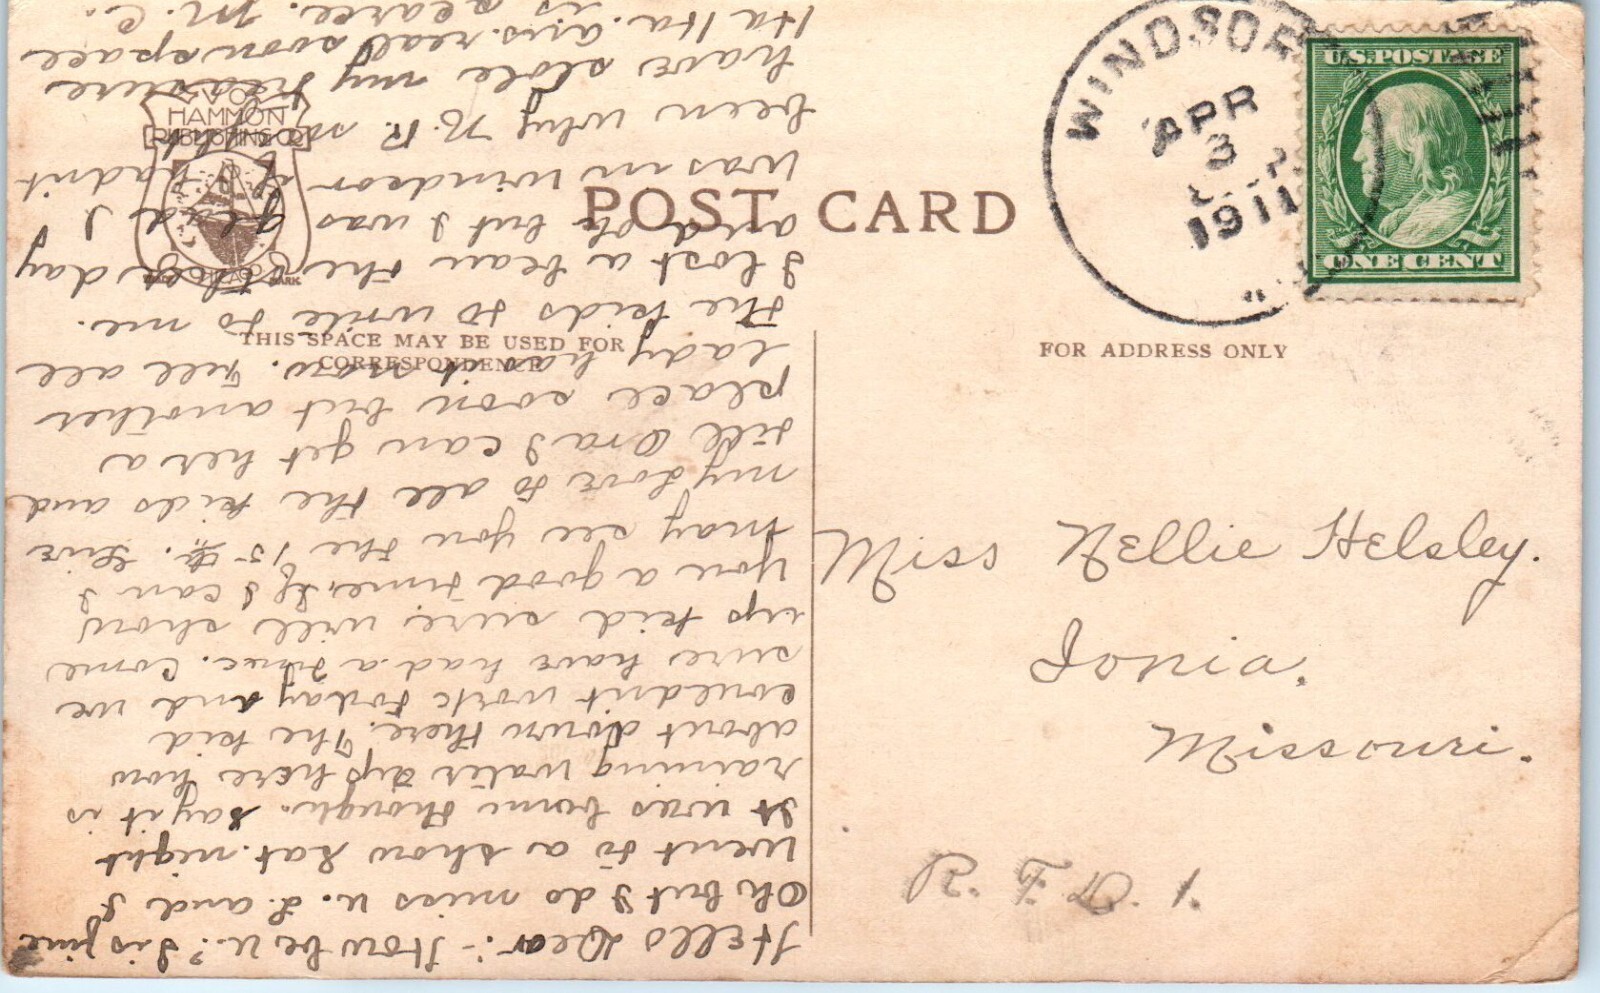 WINDSOR
APR
3
1911
U.S. POSTAGE
ONE CENT
V.O.
HAMMON
PUBLISHING CO
POST CARD
THIS SPACE MAY BE USED FOR
CORRESPONDENCE
FOR ADDRESS ONLY
Miss Nellie Helsley.
Ionia.
Missouri.
R. F. D. 1.
Hells Dear:- How be U? I is fine
Oh but I do miss U. L. and I
went to a show Sat. night
It was bum though. Say it is
raining water up here how
about down there. The kid
couldn't work today and we
sure have had a time. Come
up kid sure will show
you a good time. If I can I
may see you the 15 th. Give
my Love to all the kids and
tell Ora I can get her a
place soon but another
lady has it now. Tell all
the kids to write to me.
I lost a beau the other day
and oh but I was glad I
was in windsor If I hadn't
been why N. R. might
have stole my treasure
Ha Ha. ans. real soon space
is scarce. M. C.